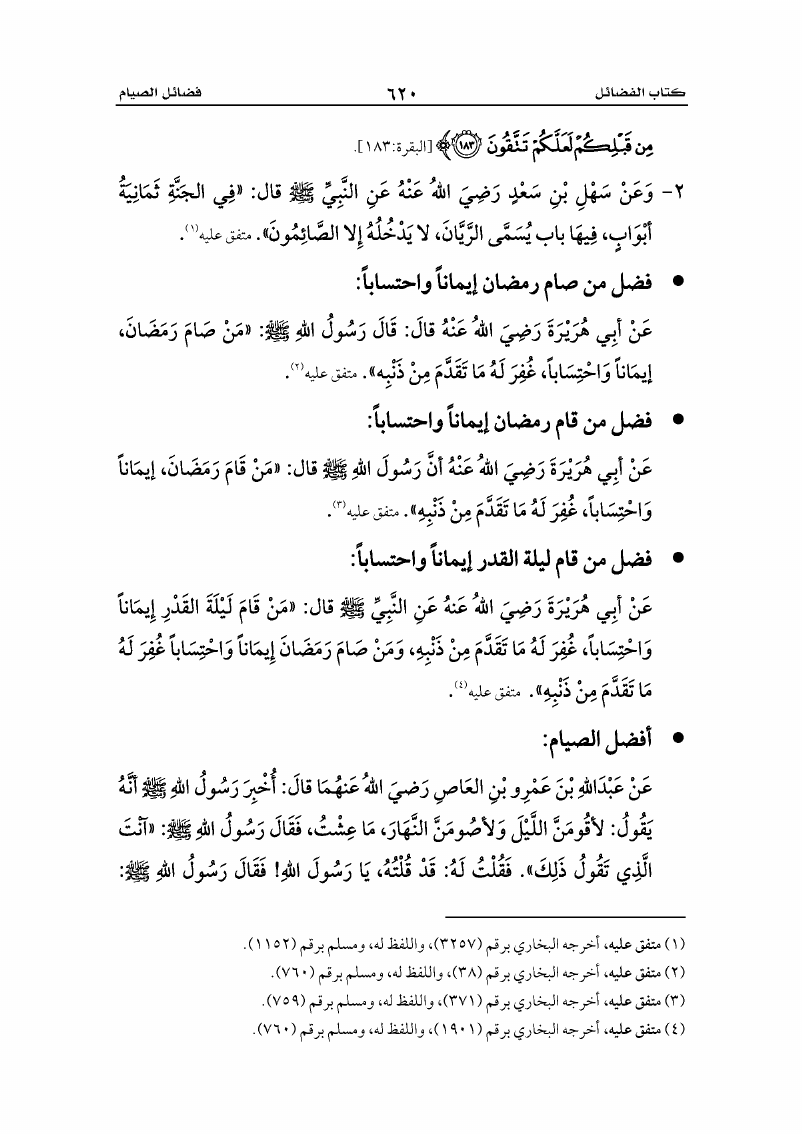 كتاب الفضائل ٦٢٠ فضائل الصيام
مِن قَبْلِكُمْ لَعَلَّكُمْ تَتَّقُونَ ﴿١٨٣﴾ [البقرة:١٨٣].
٢- وَعَنْ سَهْلِ بْنِ سَعْدٍ رَضِيَ اللهُ عَنْهُ عَنِ النَّبِيِّ ﷺ قال: «فِي الجَنَّةِ ثَمَانِيَةُ
أبْوَابٍ، فِيهَا باب يُسَمَّى الرَّيَّانَ، لا يَدْخُلُهُ إلا الصَّائِمُونَ». متفق عليه(١).
● فضل من صام رمضان إيماناً واحتساباً:
عَنْ أبِي هُرَيْرَةَ رَضِيَ اللهُ عَنْهُ قالَ: قَالَ رَسُولُ اللهِ ﷺ: «مَنْ صَامَ رَمَضَانَ،
إيمَاناً وَاحْتِسَاباً، غُفِرَ لَهُ مَا تَقَدَّمَ مِنْ ذَنْبِه». متفق عليه(٢).
● فضل من قام رمضان إيماناً واحتساباً:
عَنْ أبِي هُرَيْرَةَ رَضِيَ اللهُ عَنْهُ أنَّ رَسُولَ اللهِ ﷺ قال: «مَنْ قَامَ رَمَضَانَ، إيمَاناً
وَاحْتِسَاباً، غُفِرَ لَهُ مَا تَقَدَّمَ مِنْ ذَنْبِهِ». متفق عليه(٣).
● فضل من قام ليلة القدر إيماناً واحتساباً:
عَنْ أبِي هُرَيْرَةَ رَضِيَ اللهُ عَنهُ عَنِ النَّبِيِّ ﷺ قال: «مَنْ قَامَ لَيْلَةَ القَدْرِ إيمَاناً
وَاحْتِسَاباً، غُفِرَ لَهُ مَا تَقَدَّمَ مِنْ ذَنْبِهِ، وَمَنْ صَامَ رَمَضَانَ إيمَاناً وَاحْتِسَاباً غُفِرَ لَهُ
مَا تَقَدَّمَ مِنْ ذَنْبِهِ». متفق عليه(٤).
● أفضل الصيام:
عَنْ عَبْدَاللهِ بْنَ عَمْرِو بْنِ العَاصِ رَضيَ اللهُ عَنهُمَا قالَ: أُخْبِرَ رَسُولُ اللهِ ﷺ أنَّهُ
يَقُولُ: لأقُومَنَّ اللَّيْلَ وَلأصُومَنَّ النَّهَارَ، مَا عِشْتُ، فَقَالَ رَسُولُ اللهِ ﷺ: «آنْتَ
الَّذِي تَقُولُ ذَلِكَ». فَقُلْتُ لَهُ: قَدْ قُلْتُهُ، يَا رَسُولَ اللهِ! فَقَالَ رَسُولُ اللهِ ﷺ:
(١) متفق عليه، أخرجه البخاري برقم (٣٢٥٧)، واللفظ له، ومسلم برقم (١١٥٢).
(٢) متفق عليه، أخرجه البخاري برقم (٣٨)، واللفظ له، ومسلم برقم (٧٦٠).
(٣) متفق عليه، أخرجه البخاري برقم (٣٧١)، واللفظ له، ومسلم برقم (٧٥٩).
(٤) متفق عليه، أخرجه البخاري برقم (١٩٠١)، واللفظ له، ومسلم برقم (٧٦٠).